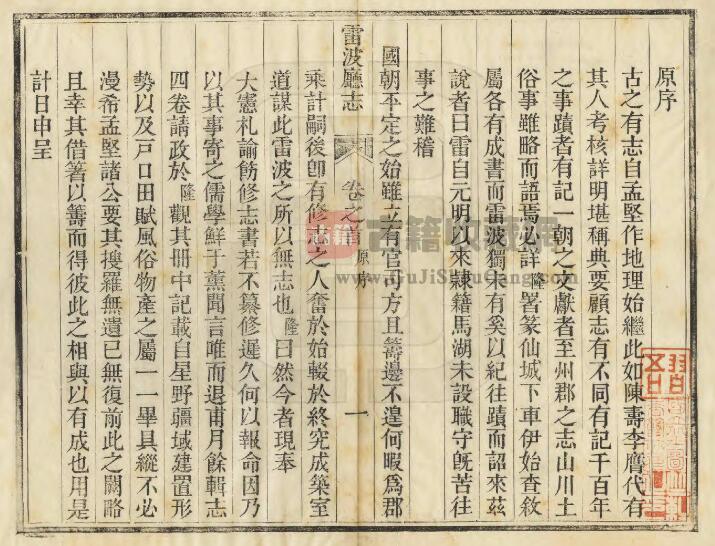 原序
古之有志自孟堅作地理始繼此如陳壽李膺代有
其人考核詳明堪稱典要顧志有不同有記千百年
之事蹟者有記一朝之文獻者至州郡之志山川土
俗事雖略而語焉必詳隆署篆仙城下車伊始查敘
屬各有成書而雷波獨未有奚以紀往蹟而詔來茲
說者曰雷自元明以來隷籍馬湖未設職守旣苦往
事之難稽
國朝平定之始雖立有官司方且籌邊不遑何暇爲郡
雷波廳志
卷之首 原序
一
乘計嗣後卽有修志之人奮於始輟於終究成築室
道謀此雷波之所以無志也隆曰然今者現奉
大憲札諭飭修志書若不纂修遲久何以報命因乃
以其事寄之儒學鮮于薰聞言唯而退甫月餘輯志
四卷請政於隆觀其冊中記載自星野疆域建置形
勢以及戸口田賦風俗物產之屬一一畢具縱不必
漫希孟堅諸公要其搜羅無遺已無復前此之闕略
且幸其借箸以籌而得彼此之相與以有成也用是
計日申呈
古籍
www.GuJiShuGuang.com